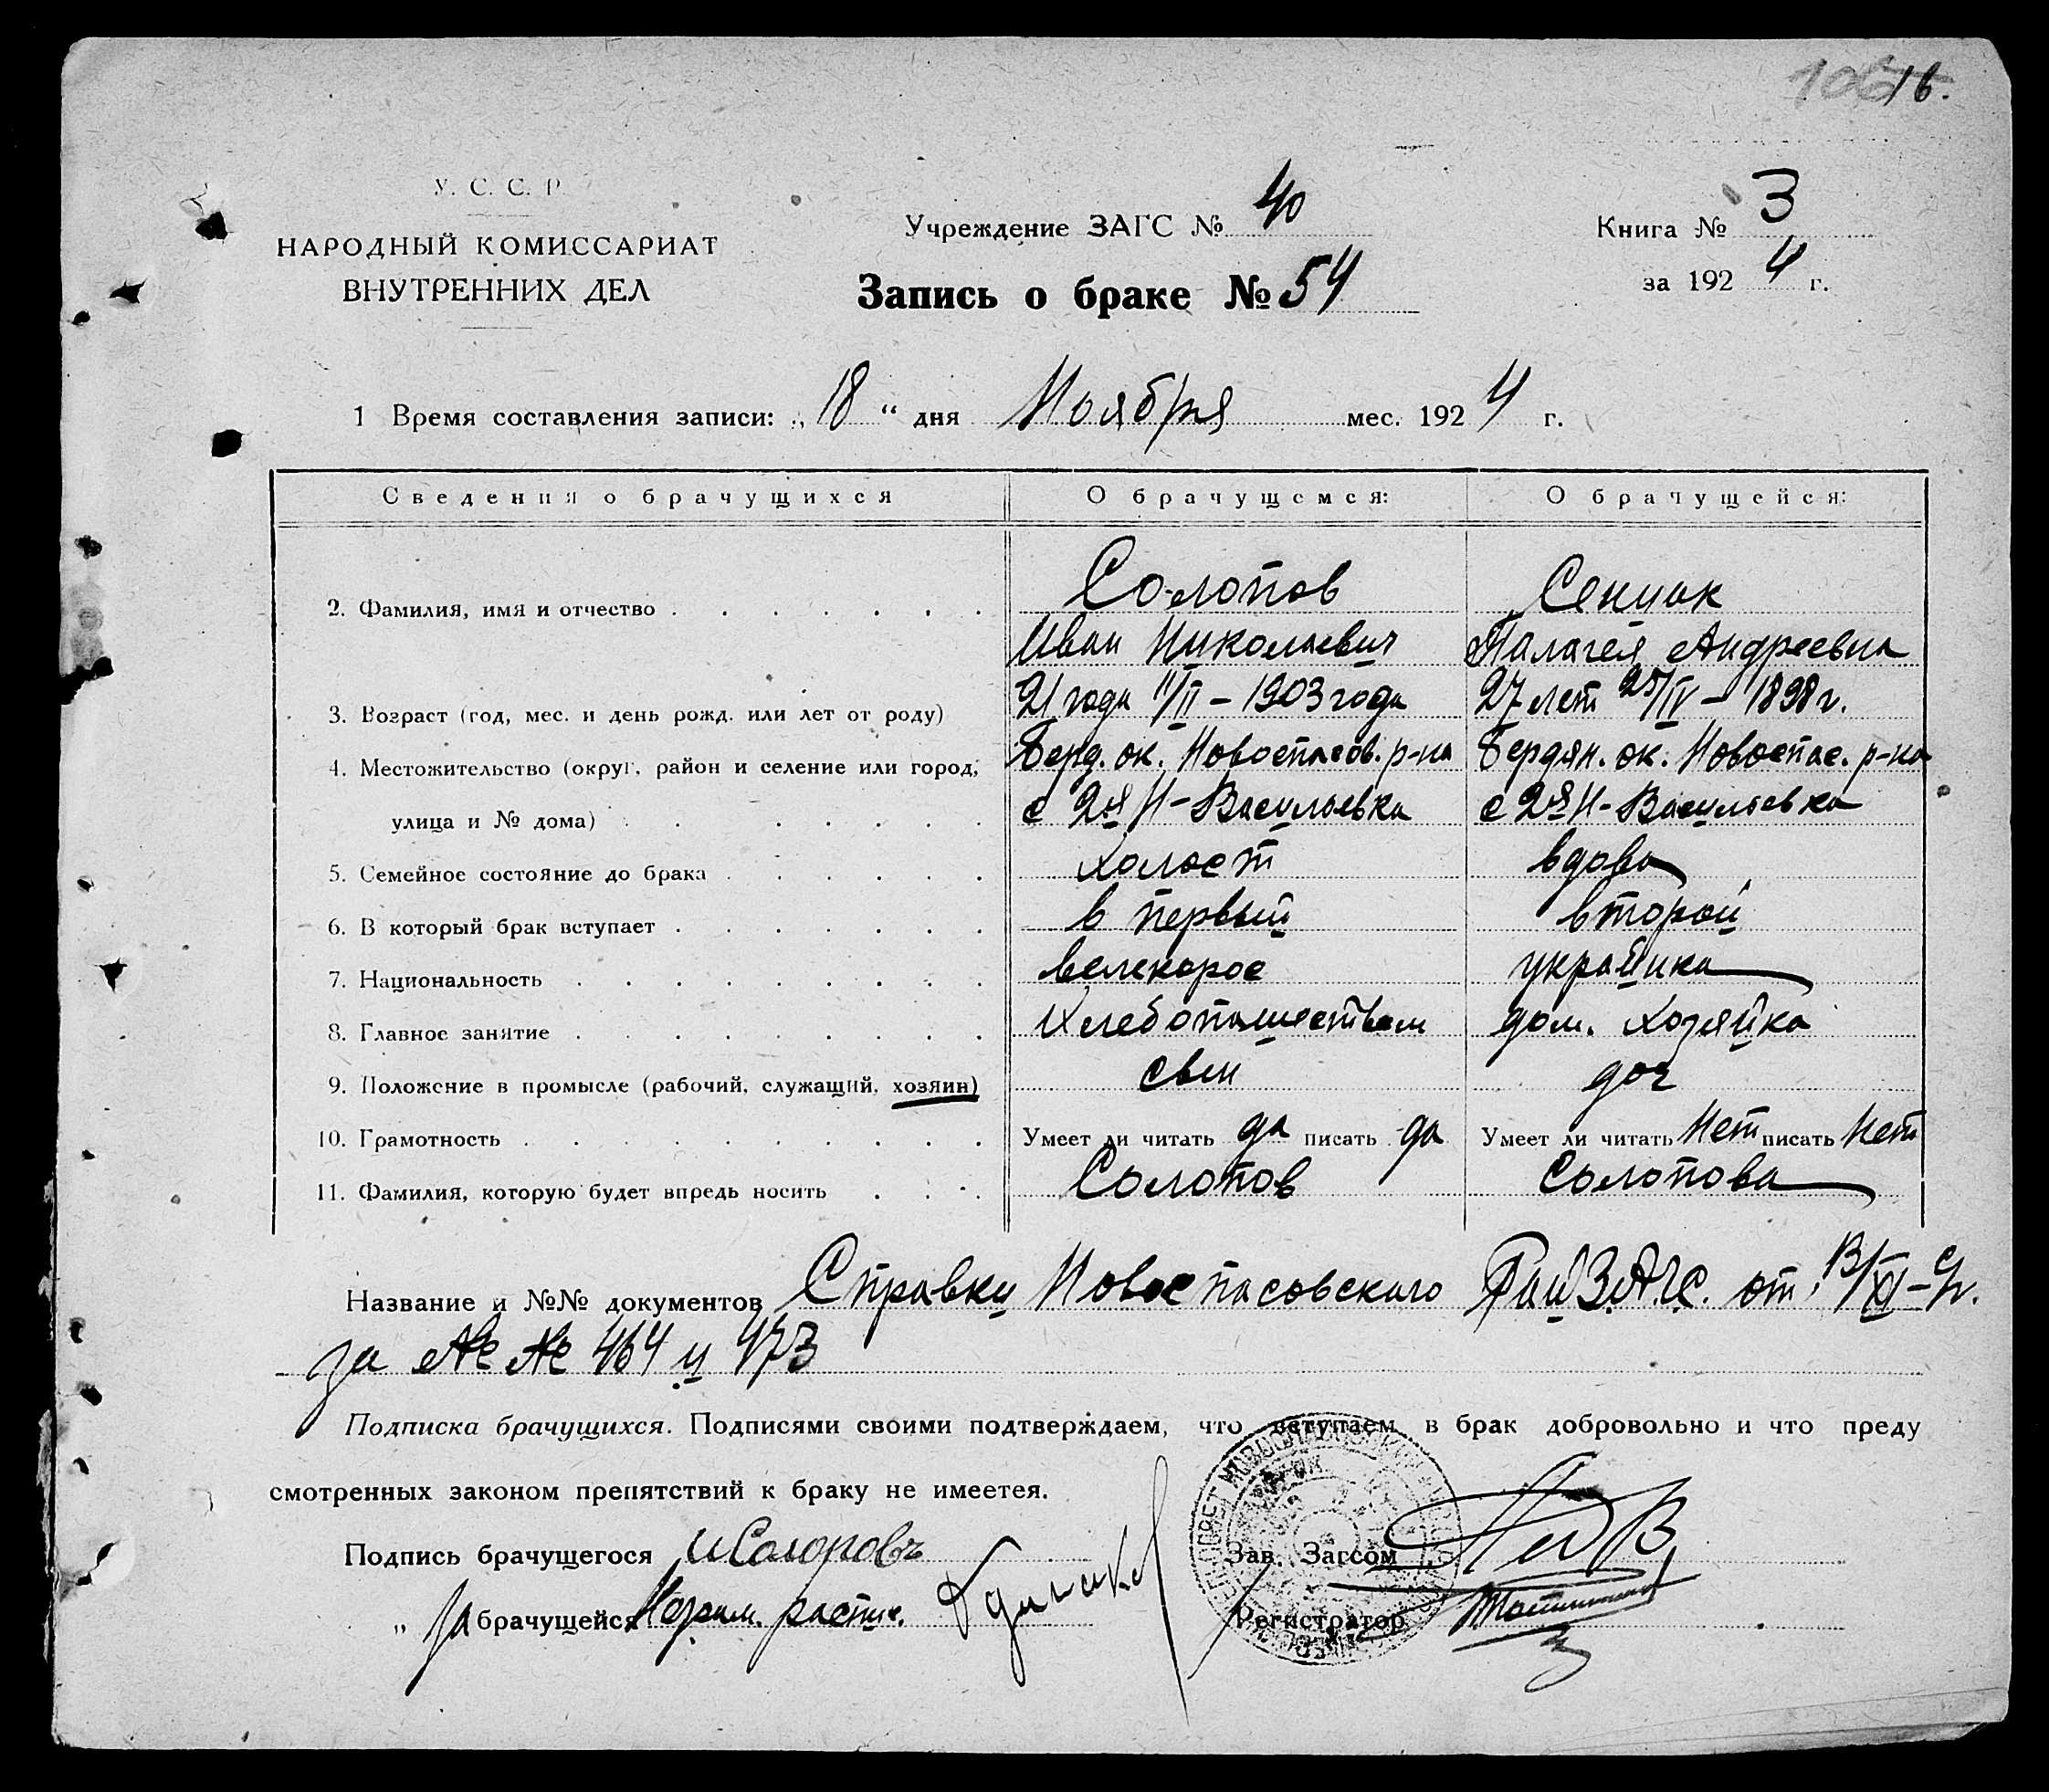 16.
У. С. С. Р.
НАРОДНЫЙ КОМИССАРИАТ
ВНУТРЕННИХ ДЕЛ
Учреждение ЗАГС № 40
Запись о браке № 54
Книга № 3
за 1924 г.
1 Время составления записи: „18 “ дня Ноября мес. 1924 г.
Сведения о брачущихся О брачущемся: О брачущейся:
2. Фамилия, имя и отчество Солопов
Иван Николаевич
Палагея Андреевна
3. Возраст (год, мес. и день рожд. или лет от роду) 21 года 11/II – 1903 года 27 лет 25/IV – 1898 г.
4. Местожительство (округ, район и селение или город, Берд. ок. Новоспасов. р-на Бердян. ок. Новоспас. р-на
улица и № дома) с 2я Н-Васильевка с 2я Н-Васильевка
5. Семейное состояние до брака холост вдова
6. В который брак вступает в первый второй
7. Национальность велекорос украйнка
8. Главное занятие Хлебопашеством дом. хозяйка
9. Положение в промысле (рабочий, служащий, хозяин) свен доч
10. Грамотность Умеет ли читать да писать да Умеет ли читать Нет писать Нет
11. Фамилия, которую будет впредь носить Солопов Солопова
Название и №№ документов Справки Новоспасовского РайЗАГС. от 13/XI–
за №№ 464 и 473
Подписка брачущихся. Подписями своими подтверждаем, что вступаем в брак добровольно и что преду
смотренных законом препятствий к браку не имеетея.
Подпись брачущегося ИСолоповъ Зав. Загсом
„ За брачущейся Регистратор